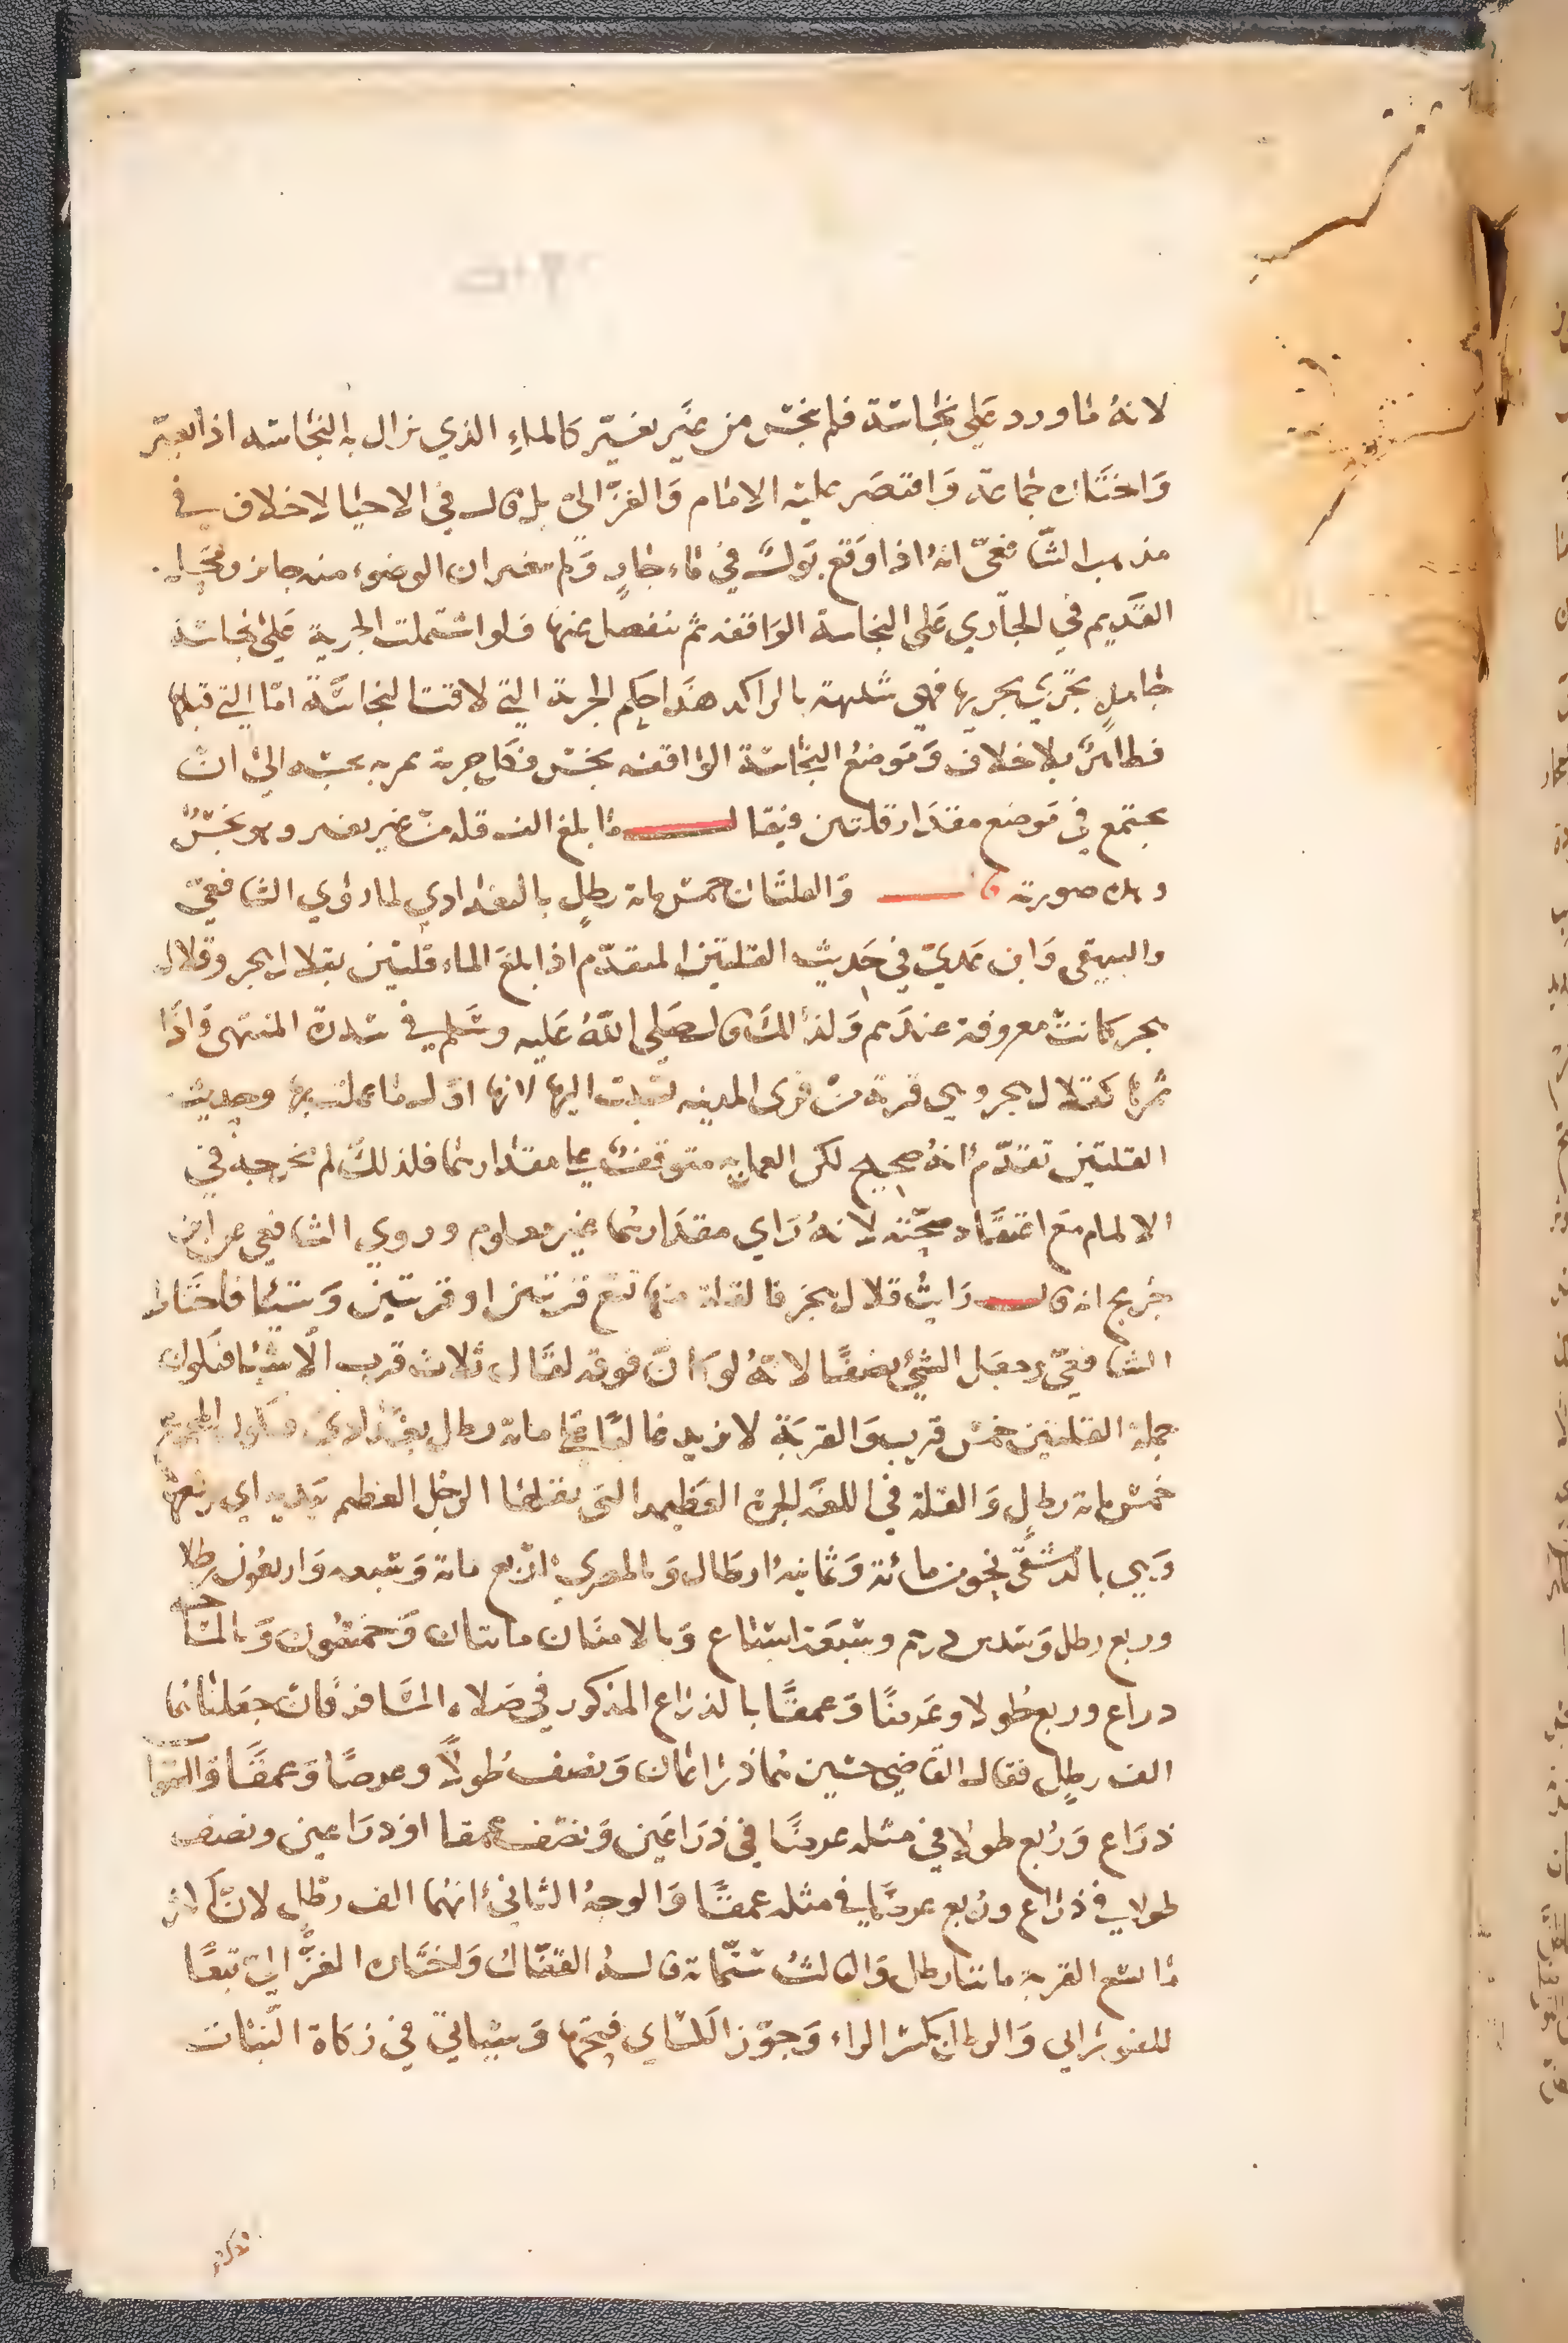 لانهُ ماورد عَلى نجاسَة فلم ينجس من غيَر تغيّر كالماءِ الذي نزال به النجاسه اذا لم يتغيّر
وَاختَاره جماعَة وَاقتصَر عليه الامام وَالغزّالي بل قال في الاحيا لا خلاف في
مذهب الشّافعيّ انهُ اذا وَقع بَولٌ في مَاء جارٍ وَلم يتغير ان الوضوء منه جائز ومحَل
القَديم في الجاّري عَلى النجاسة الوَاقفه ثم ينفصل عنها فلو اشتملت الجرية عَلى نجاسَة
جامدٍ تجري بجريها فهي شبيهة بالراكد هذا حكم الجرية التي لاقت النجاسَة امّا التي قبلها
فطاهرٌ بلا خلاف وَمَوضعُ النجاسَة الوَاقفه نجس فكل جرية تمر به نجسَه الى ان
يجتمع في مَوضع مقدَار قلتين ويقال ما بلغ الف قله من غير تغير وهو نجسٌ
وهذه صورته قال وَالقلتَان خمسُ مائة رطلٍ بالبغدادي لما روي الشافعيّ
والبيهقي وَابن عَديّ في حَديث القلتين المتقدّم اذا بلغَ الماء قلتين بقلال هجر وقلال
هجر كانت معروفة عندَهم وَلذلكَ قال صَلى اللهُ عَليه وسَلم في سدرة المنتهى وَاذا
ثمرها كقلال هجر وهي قرية من قرى المدينه نسبت اليها لانها اوّل ما عملت بها وحديث
القلتين تقدّم انهُ صحيح لكن العمل به متوقفٌ على مقدارهما فلذلك لم يخرجه في
الالمام مَع اعتقَاد صحّته لانهُ رَاي مقدَارهما غير معلوم وروي الشافعي عن ابن
جُريج انه قال رَايتُ قلال هجَر فالقلة منها تسَع قربتين او قربتين وَشيئا فاحتَاط
الشافعيّ وجعَل الشيء نصفًا لانهُ لو كانَ فوقه لقَال ثلاث قرب الّا شيئا فتكون
جملة القلتين خمسُ قِرب وَالقربَة لا تزيد غالبًا على مائة رطل بغدَادي فتكون المجموع
خمسُ مائة رطلٍ وَالقلة في اللغَه الجرة العَظيمه التى يقلها الرجُل العظيم بيَديه اي يرفعها
وَهي بالدمشقّي نحو من مائة وَثمانيهُ ارطَال وَبالمصري اربَع مائة وَستّه وَاربعُون رطلا
وربع رطل وَسدس درهم وسَبعَة اسبَاع وَبالامنَان مائتان وَخمسُون وَبالمسَاحه
ذراع وربع طُولا وعَرضًا وَعمقًا بالذرَاع المذكور في صَلاه المسَافر فان جعَلناهُما
الف رطلٍ فقال القَاضي حسَين هُما ذرَاعَان وَنصف طُولاً وعرضًا وَعمقًا
ذرَاع وَرُبع طولا في مثله عرضًا في ذرَاعَين وَنصف عمقا او ذرَاعين ونصف
طولا في ذرَاع ورُبع عرضًا في مثله عمقًا وَالوجهُ الثاني انهُما الف رطل لان اكثر
مَا تسع القربة مائتا رطل وَالثالثُ ستّمائة قالهُ القفّال وَاختَاره الغزّالي تبعًا
للفورَاني وَالرطل بكسر الراء وَجوّز الكسَاي فتحَها وَسَياتي في زكاة النبَات